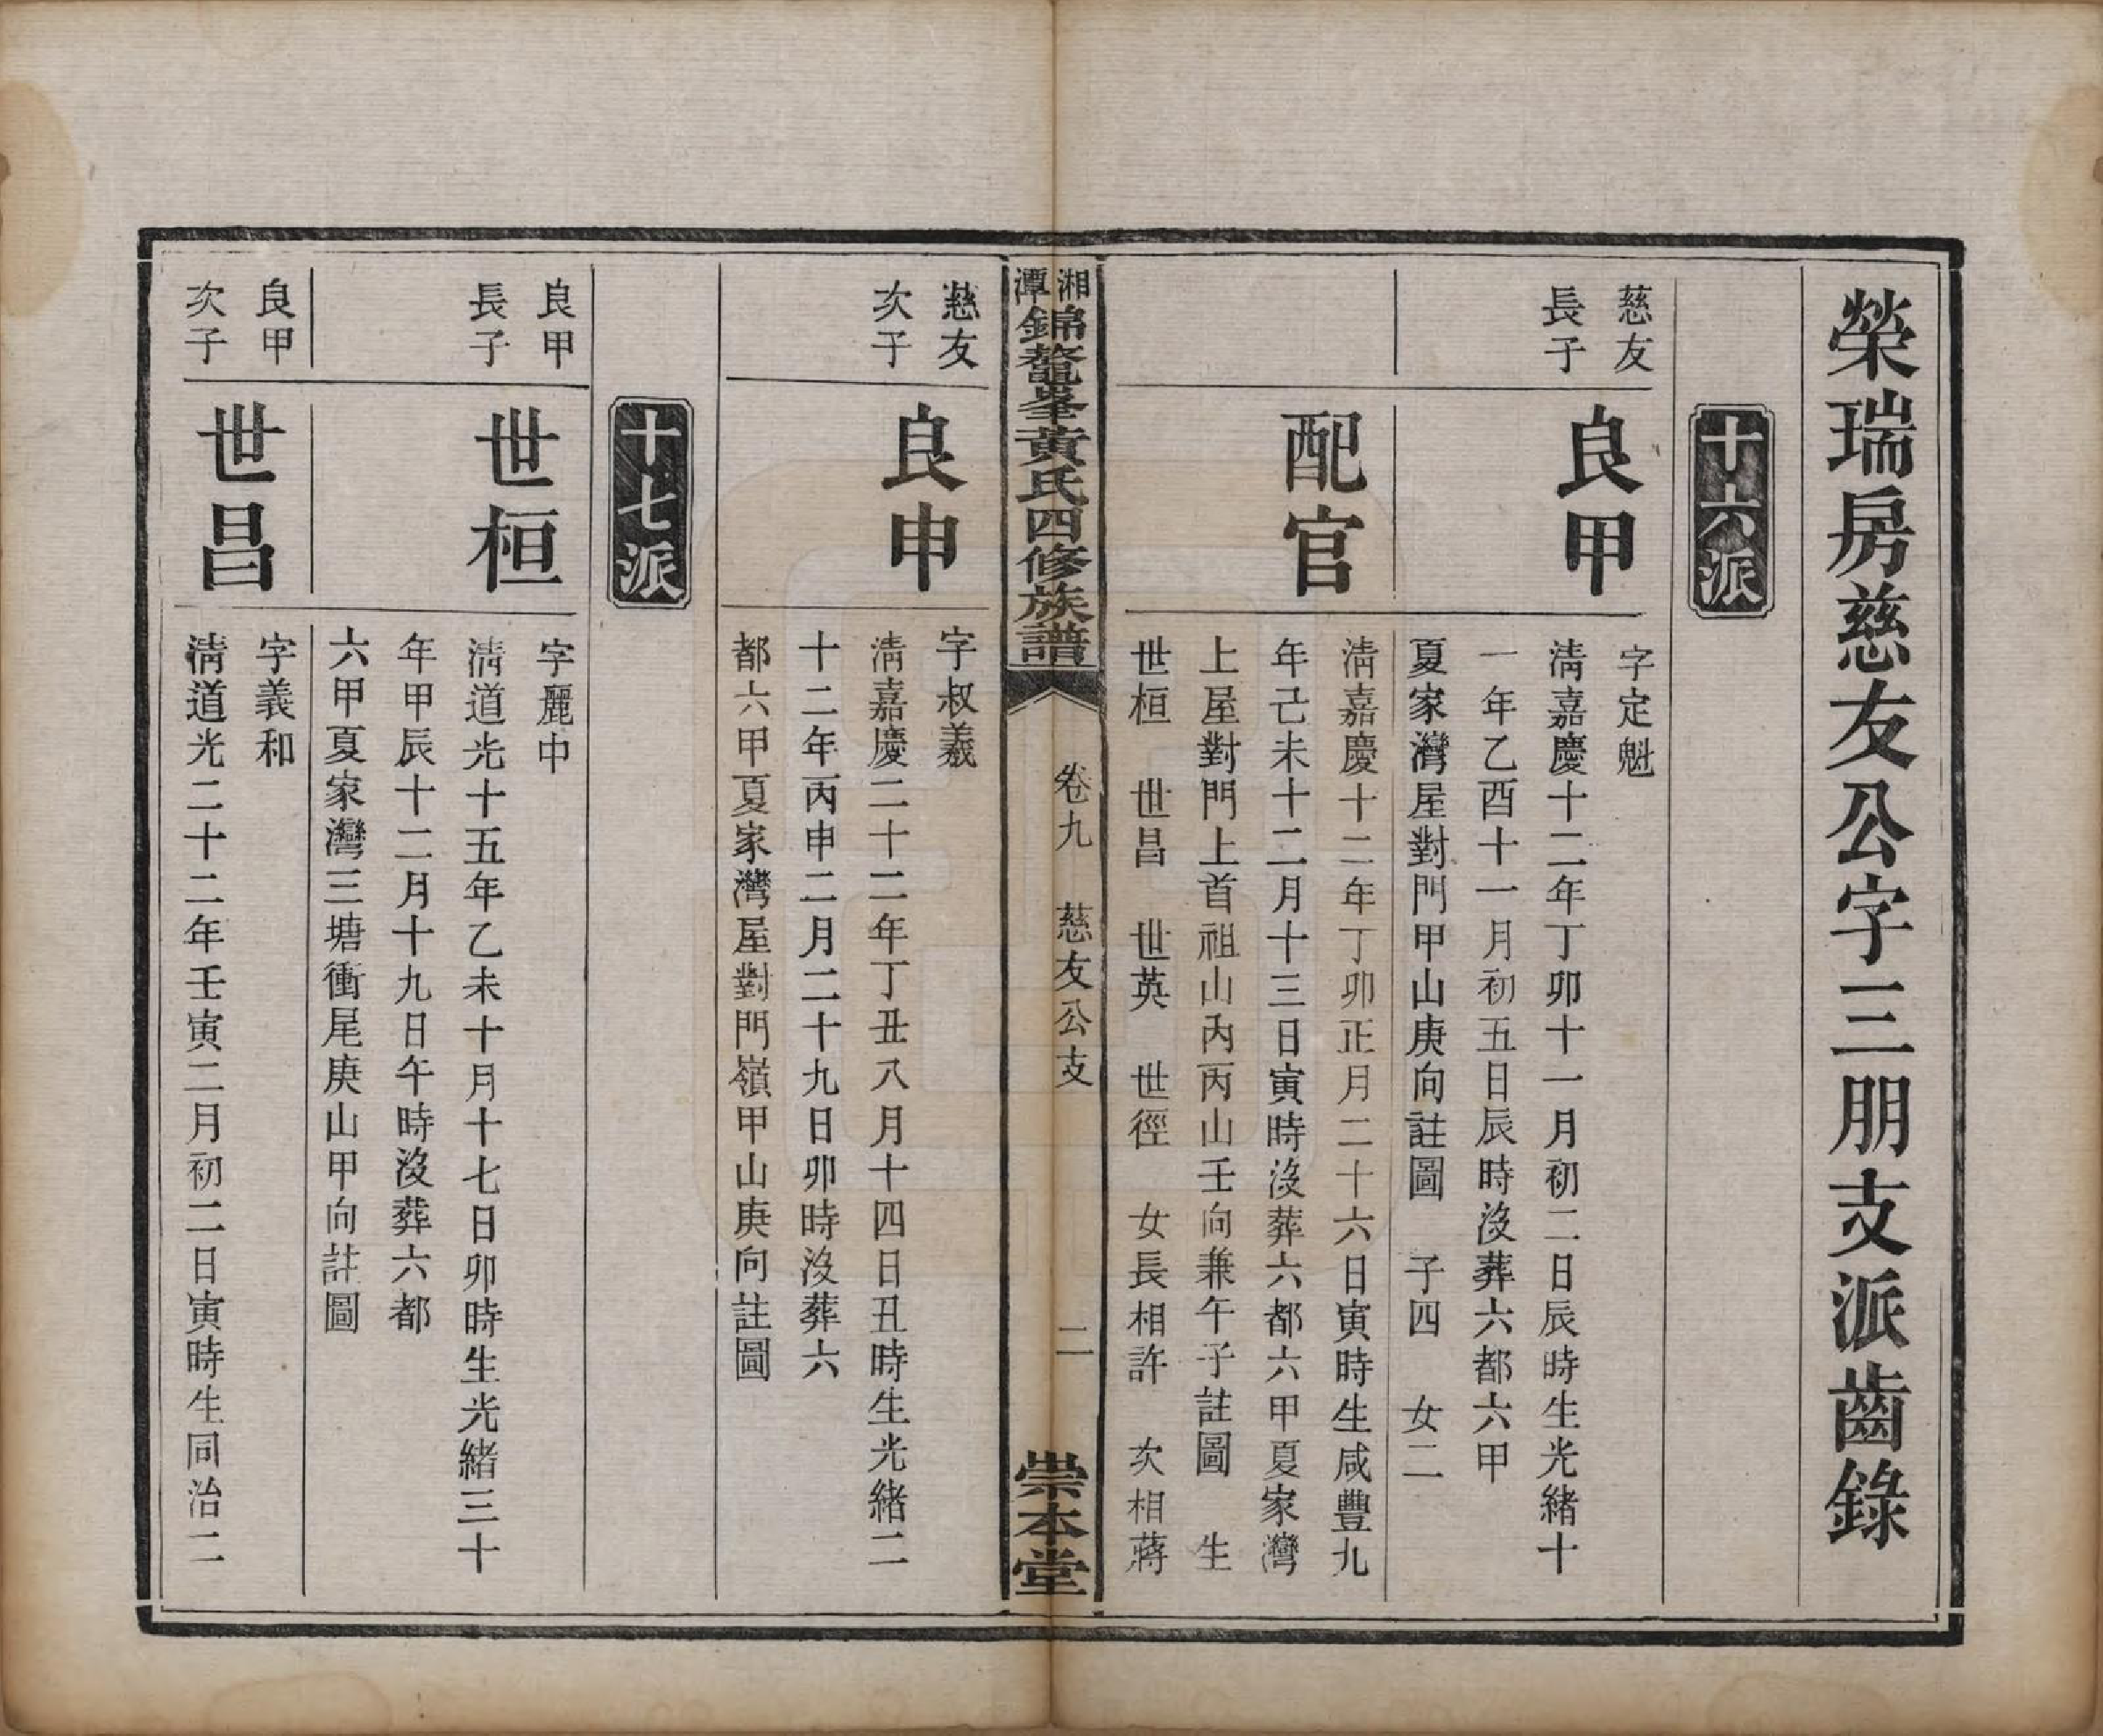 榮瑞房慈友公字三朋支派齒錄
十六派
慈友
長子
良甲
字定魁
淸嘉慶十二年丁卯十一月初二日辰時生光緒十
一年乙酉十一月初五日辰時沒葬六都六甲
夏家灣屋對門甲山庚向註圖 子四 女二
配官
淸嘉慶十二年丁卯正月二十六日寅時生咸豐九
年己未十二月十三日寅時沒葬六都六甲夏家灣
上屋對門上首祖山內丙山壬向兼午子註圖 生
世桓 世昌 世英 世徑 女長相許 次相蔣
湘潭錦鰲峯黃氏四修族譜
卷九 慈友公支
二
崇本堂
慈友
次子
良申
字叔義
淸嘉慶二十二年丁丑八月十四日丑時生光緒二
十二年丙申二月二十九日卯時沒葬六
都六甲夏家灣屋對門嶺甲山庚向註圖
十七派
良甲
長子
世桓
字麗中
淸道光十五年乙未十月十七日卯時生光緒三十
年甲辰十二月十九日午時沒葬六都
六甲夏家灣三塘衝尾庚山甲向註圖
良甲
次子
世昌
字義和
淸道光二十二年壬寅二月初二日寅時生同治二